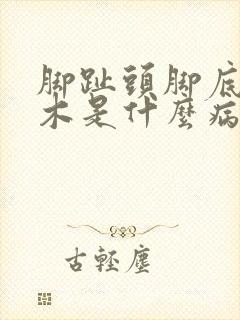 脚趾頭脚底
木是什麽病
古輕塵